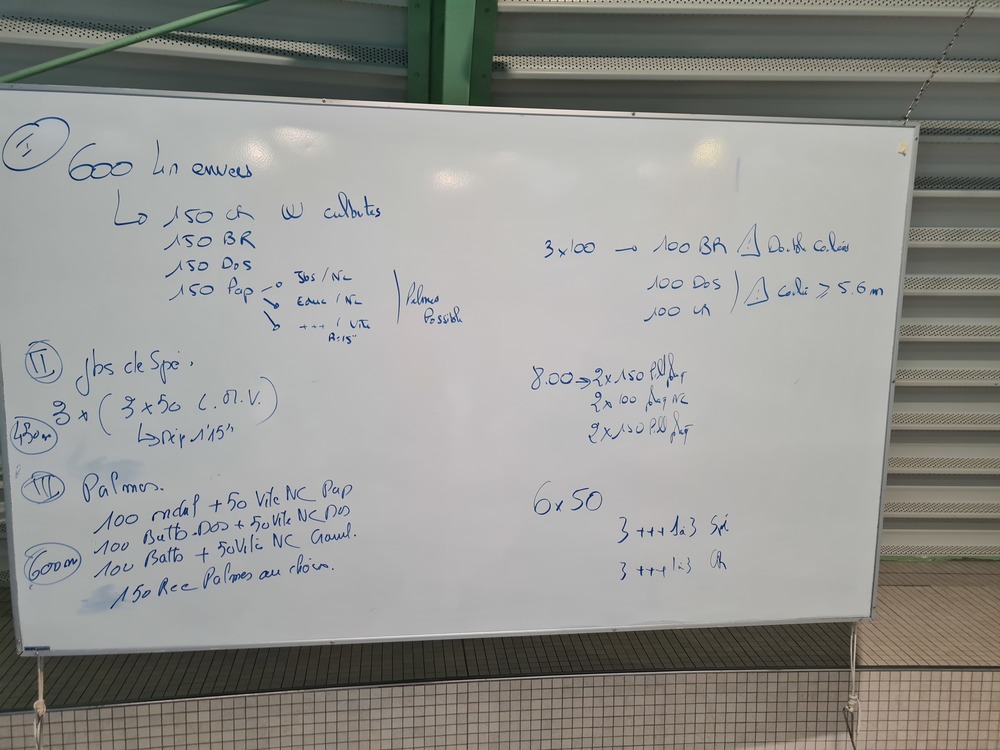 I
600 4n envers
↳ 150 CR culbutes
150 BR
150 DOS
150 Pap → Jbs / NC
Educ / NC
+++ / Vite
R=15"
Palmes
Possible
II Jbs de Spé.
3 × ( 3 × 50 L.M.V. )
↳ Dép 1'15"
450m
III Palmes.
100 ondul + 50 Vite NC Pap
100 Batts Dos + 50 Vite NC Dos
100 Batts + 50 Vite NC Crawl.
600m
150 Rec Palmes au choix.
3×100 → 100 BR ⚠ Double coulées
100 DOS
100 CR
⚠ coulée ≥ 5.6 m
800 → 2×150 Pull plaq
2×100 plaq NC
2×150 Pull plaq
6×50
3 +++ 1à3 Spé
3 +++ 1à3 CR